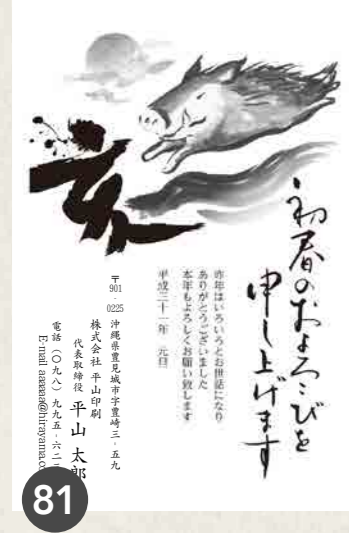 初春のおよろこびを
申し上げます
昨年はいろいろとお世話になり
ありがとうございました
本年もよろしくお願い致します
平成三十一年 元旦
亥
〒901-0225 沖縄県豊見城市字豊崎三-五九
株式会社 平山印刷
代表取締役 平山 太郎
電話(〇九八)九九五-六二
E-mail aaaaaa@hirayama.co
81